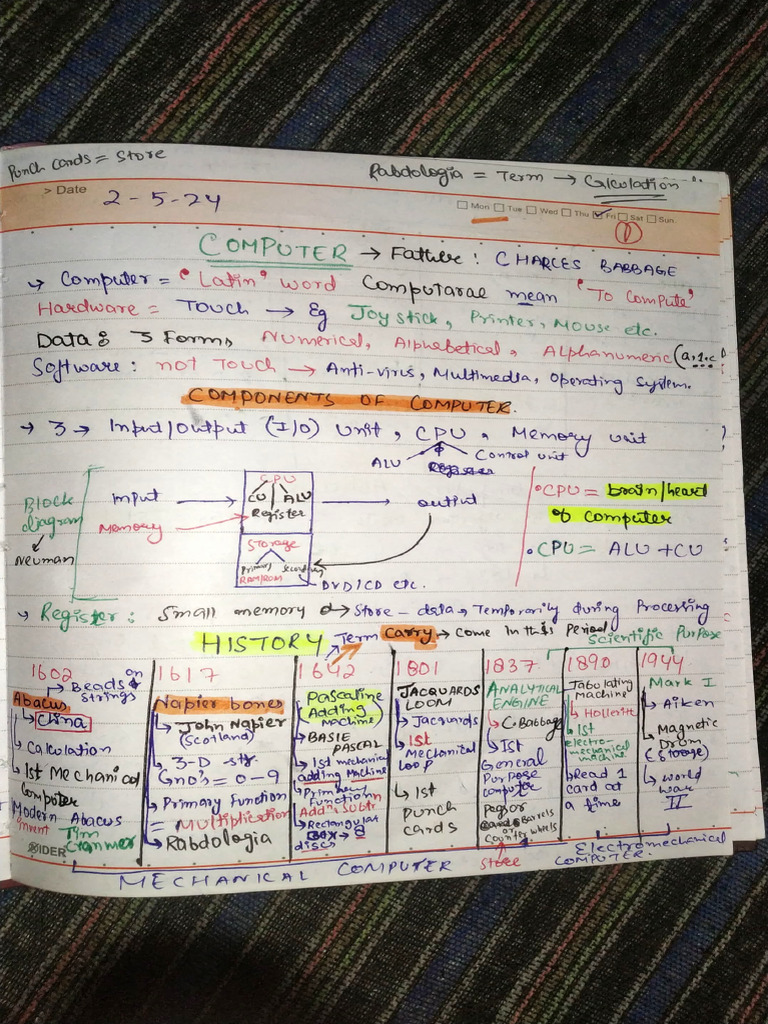 Punch Cards = Store
Rabdologia = Term → Calculation
> Date 2-5-24
Mon Tue Wed Thu Fri Sat Sun
①
COMPUTER → Father : CHARLES BABBAGE
→ Computer = "Latin" word Computarae mean "To compute"
Hardware = Touch → Eg Joystick, Printer, Mouse etc.
Data : 3 Forms, Numerical, Alphabetical, Alphanumeric (a,1,c
Software : not Touch → Anti-virus, Multimedia, Operating System.
COMPONENTS OF COMPUTER.
→ 3 → Input/output (I/O) Unit, CPU, Memory unit
ALU Register Control unit
Block diagram
Neuman
Input
Memory
CPU
CU ALU
Register
output
Storage
Primary Secondary
RAM/ROM
DVD/CD etc.
• CPU = brain/heard
of computer
• CPU = ALU + CU
→ Register : Small memory → Store - data, Temporarily during Processing
HISTORY Term Carry → Come In this Period
Scientific Purpose
1602
Beads on
strings
Abacus
China
Calculation
1st Mechanical
Computer
Modern Abacus
invent Tim
Cranmer
1617
Napier bones
John Napier
(Scotland)
3-D
no's = 0-9
Primary function
= Multiplication
Rabdologia
1642
Pascaline
(Adding
Machine)
BASIE
PASCAL
1st mechanical
adding Machine
Primary
Function
Addn, Subtrn
Rectangular
Box → 8
discs
1801
JACQUARDS
LOOM
Jacquards
1st
Mechanical
LOOP
1st
Punch
cards
1837
ANALYTICAL
ENGINE
C. Babbage
1st
General
Purpose
computer
Pegs or
Barrels
or
Counter wheels
store
1890
Tabulating
Machine
Hollerith
1st
electro-
mechanical
machine
Read 1
card at
a time
1944
Mark I
Aiken
Magnetic
Drum
(Storage)
World
war
II
SIDER
MECHANICAL COMPUTER
Electromechanical
COMPUTER.